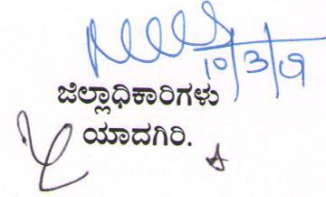 10/3/19
ಜಿಲ್ಲಾಧಿಕಾರಿಗಳು
ಯಾದಗಿರಿ.